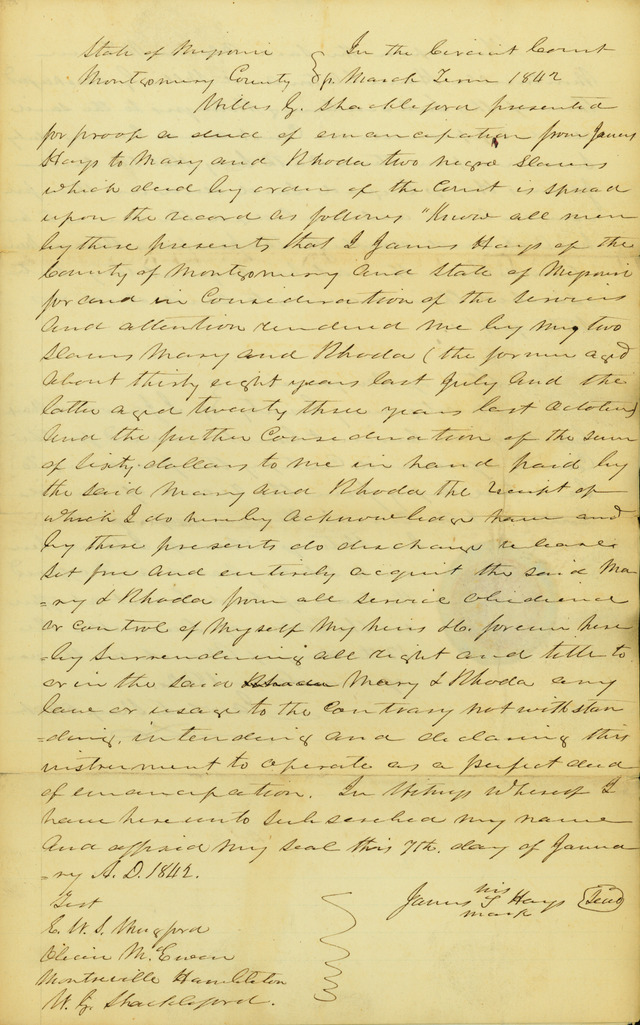 State of Missouri } In the Circuit Court
Montgomery County } March Term 1842
Willis G. Shackleford presented
for proof a deed of emancipation from James
Hays to Mary and Rhoda two negro Slaves
which deed by order of the Court is spread
upon the record as follows "Know all men
by these presents that I James Hays of the
County of Montgomery and State of Missouri
for and in Consideration of the services
and attention rendered me by my two
Slaves Mary and Rhoda (the former aged
about thirty eight years last July and the
latter aged twenty three years last October)
And the further Consideration of the sum
of Sixty dollars to me in hand paid by
the said Mary and Rhoda the receipt of
which I do hereby acknowledge have and
by these presents do discharge release
set free and entirely acquit the said Ma-
-ry & Rhoda from all service obedience
or control of myself my heirs &c. forever here
-by surrendering all right and title to
or in the said Rhoda Mary & Rhoda any
law or usage to the contrary not with stan
-ding, intending and declaring this
instrument to operate as a perfect deed
of emancipation. In Witness Whereof I
have here unto subscribed my name
and affixed my seal this 7th. day of Janua
-ry A. D. 1842.
Test
James his Hays (Seal)
mark
E. W. S. Mugford
Olivir McEwen
Montreville Hambleton
W. G. Shackleford.